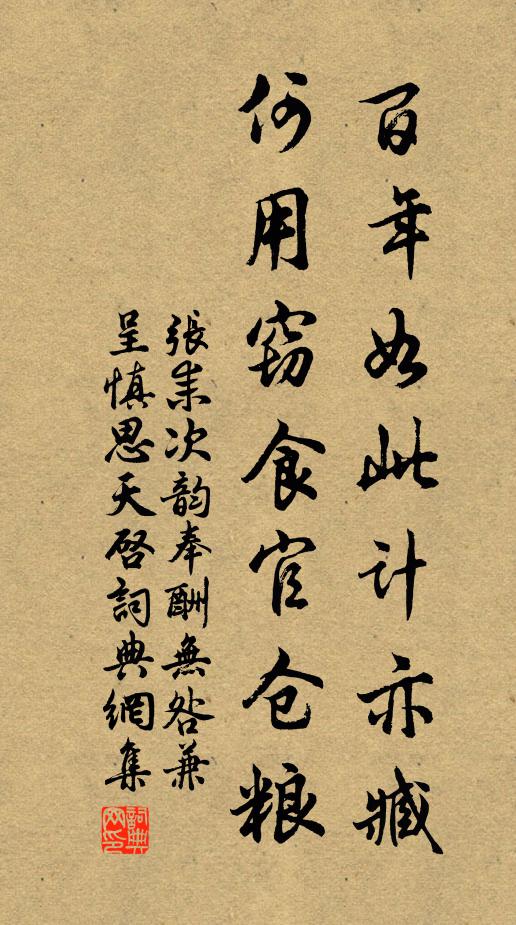 百年如此计亦臧
何用窃食官仓粮
張耒次韵奉酬無咎兼
呈慎思天啓詞典網集
詞典
网印